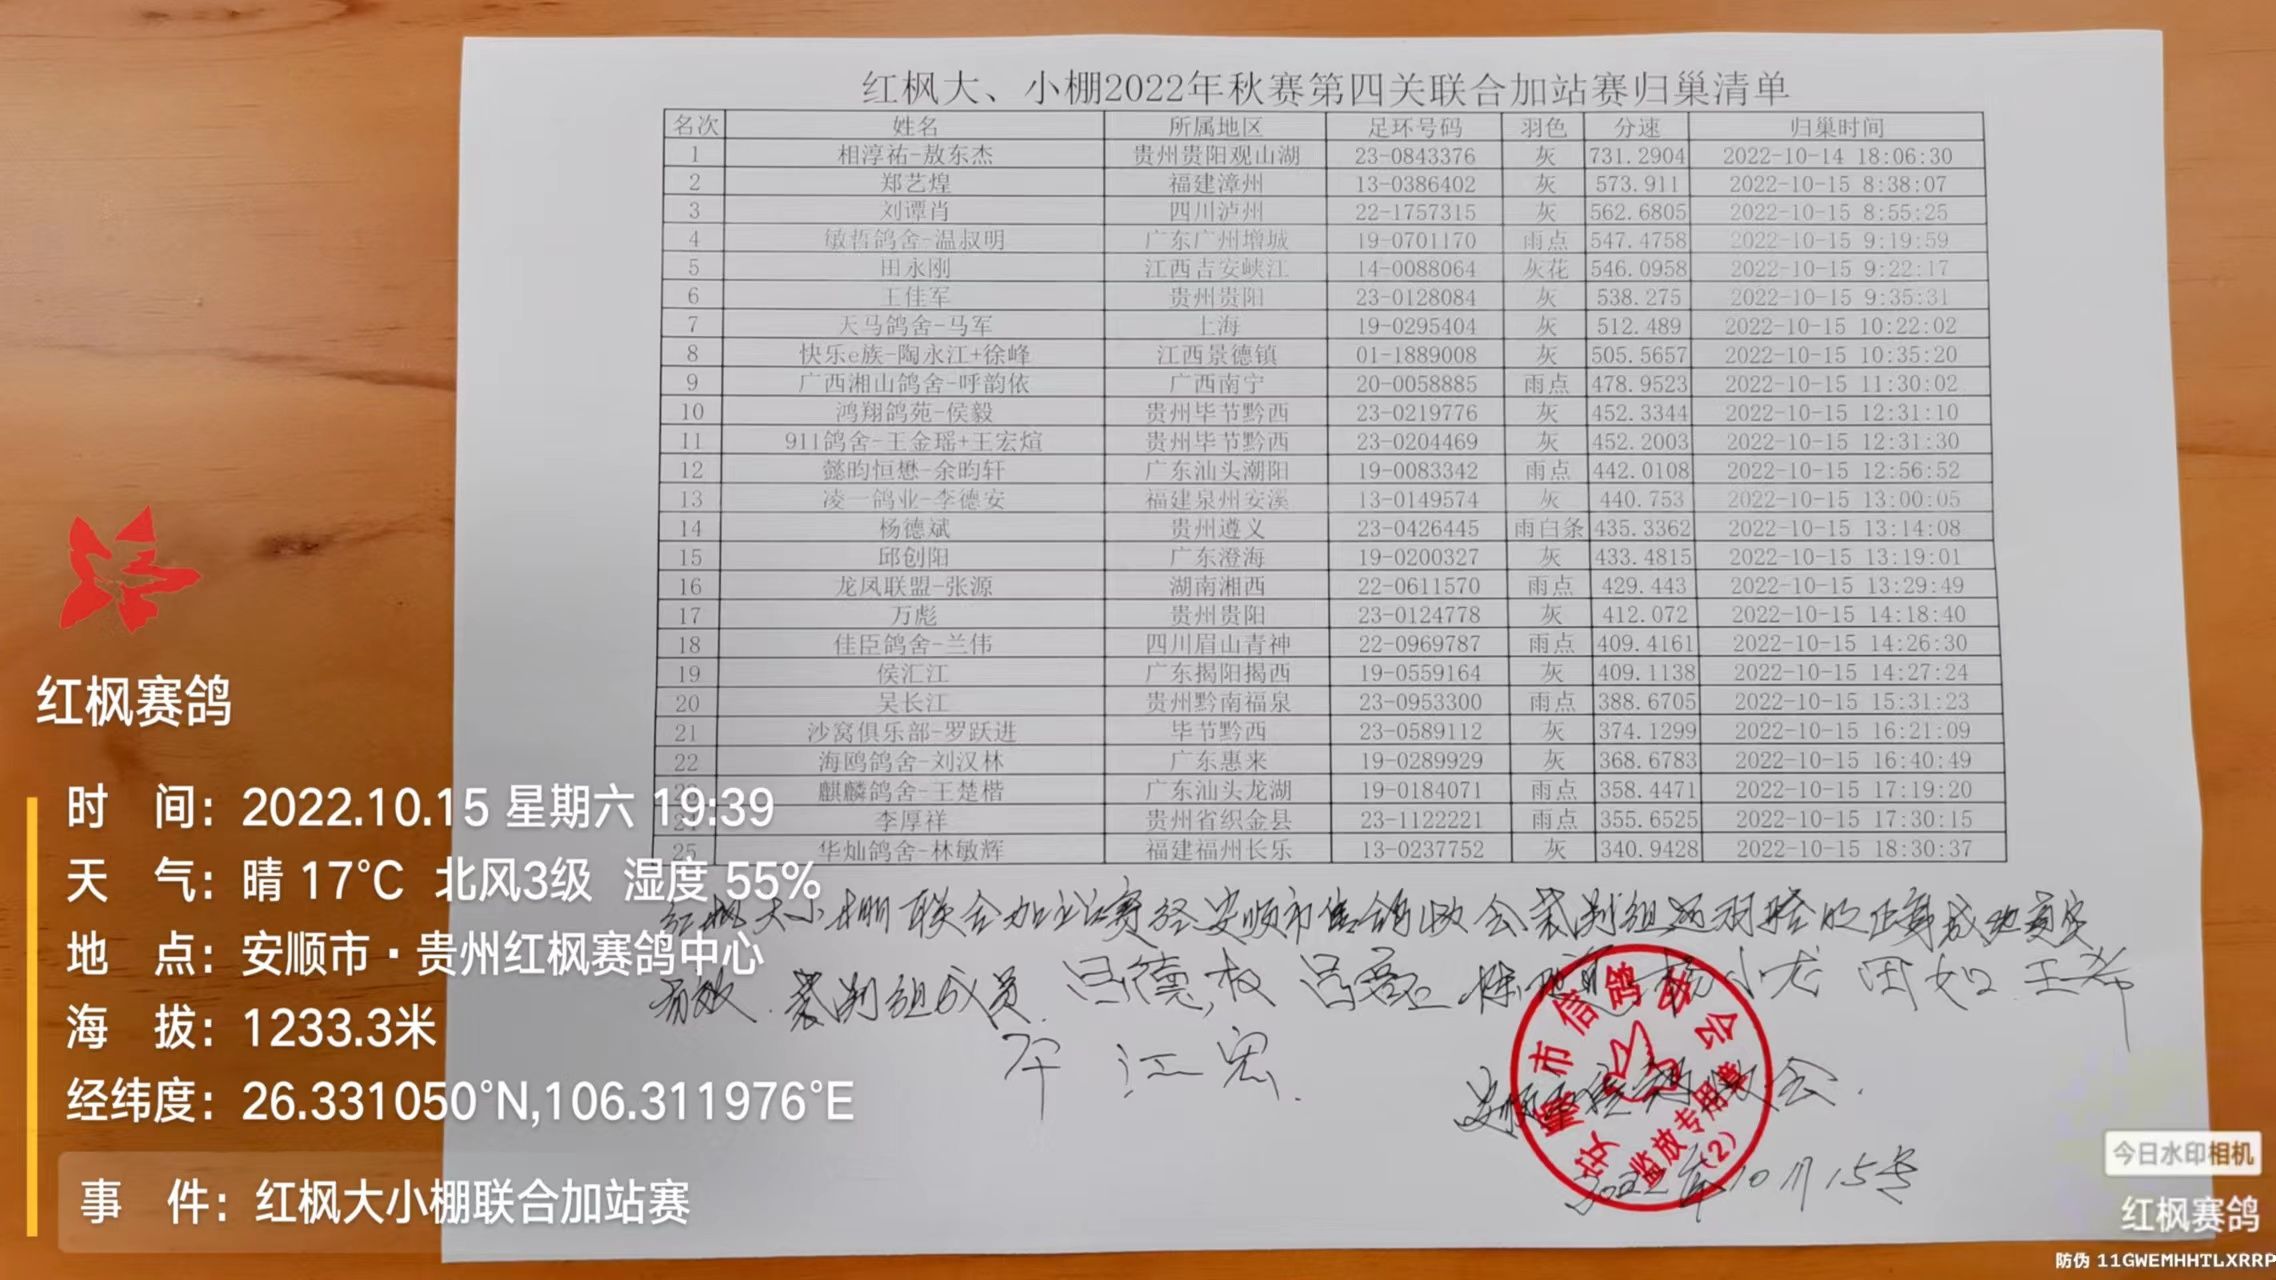 红枫大、小棚2022年秋赛第四关联合加站赛归巢清单
名次 姓名 所属地区 足环号码 羽色 分速 归巢时间
1 相淳祐-敖东杰 贵州贵阳观山湖 23-0843376 灰 731.2904 2022-10-14 18:06:30
2 郑艺煌 福建漳州 13-0386402 灰 573.911 2022-10-15 8:38:07
3 刘谭肖 四川泸州 22-1757315 灰 562.6805 2022-10-15 8:55:25
4 敏哲鸽舍-温叔明 广东广州增城 19-0701170 雨点 547.4758 2022-10-15 9:19:59
5 田永刚 江西吉安峡江 14-0088064 灰花 546.0958 2022-10-15 9:22:17
6 王佳军 贵州贵阳 23-0128084 灰 538.275 2022-10-15 9:35:31
7 天马鸽舍-马军 上海 19-0295404 灰 512.489 2022-10-15 10:22:02
8 快乐e族-陶永江+徐峰 江西景德镇 01-1889008 灰 505.5657 2022-10-15 10:35:20
9 广西湘山鸽舍-呼韵依 广西南宁 20-0058885 雨点 478.9523 2022-10-15 11:30:02
10 鸿翔鸽苑-侯毅 贵州毕节黔西 23-0219776 灰 452.3344 2022-10-15 12:31:10
11 911鸽舍-王金瑶+王宏煊 贵州毕节黔西 23-0204469 灰 452.2003 2022-10-15 12:31:30
12 懿昀恒懋-余昀轩 广东汕头潮阳 19-0083342 雨点 442.0108 2022-10-15 12:56:52
13 凌一鸽业-李德安 福建泉州安溪 13-0149574 灰 440.753 2022-10-15 13:00:05
14 杨德斌 贵州遵义 23-0426445 雨白条 435.3362 2022-10-15 13:14:08
15 邱创阳 广东澄海 19-0200327 灰 433.4815 2022-10-15 13:19:01
16 龙凤联盟-张源 湖南湘西 22-0611570 雨点 429.443 2022-10-15 13:29:49
17 万彪 贵州贵阳 23-0124778 灰 412.072 2022-10-15 14:18:40
18 佳臣鸽舍-兰伟 四川眉山青神 22-0969787 雨点 409.4161 2022-10-15 14:26:30
19 侯汇江 广东揭阳揭西 19-0559164 灰 409.1138 2022-10-15 14:27:24
20 吴长江 贵州黔南福泉 23-0953300 雨点 388.6705 2022-10-15 15:31:23
21 沙窝俱乐部-罗跃进 毕节黔西 23-0589112 灰 374.1299 2022-10-15 16:21:09
22 海鸥鸽舍-刘汉林 广东惠来 19-0289929 灰 368.6783 2022-10-15 16:40:49
23 麒麟鸽舍-王楚楷 广东汕头龙湖 19-0184071 雨点 358.4471 2022-10-15 17:19:20
24 李厚祥 贵州省织金县 23-1122221 雨点 355.6525 2022-10-15 17:30:15
25 华灿鸽舍-林敏辉 福建福州长乐 13-0237752 灰 340.9428 2022-10-15 18:30:37
红枫大小棚联合加站赛经安顺市信鸽协会裁判组 成绩真实
有效.裁判组成员 吕德权 杨小龙 田如 王希
江宏
安顺市信鸽协会.
2022年10月15号
安顺市信鸽协会
监放专用章
(2)
红枫赛鸽
时 间: 2022.10.15 星期六 19:39
天 气: 晴 17°C 北风3级 湿度 55%
地 点: 安顺市·贵州红枫赛鸽中心
海 拔: 1233.3米
经纬度: 26.331050°N,106.311976°E
事 件: 红枫大小棚联合加站赛
今日水印相机
红枫赛鸽
防伪 11GWEMHHTLXRRP